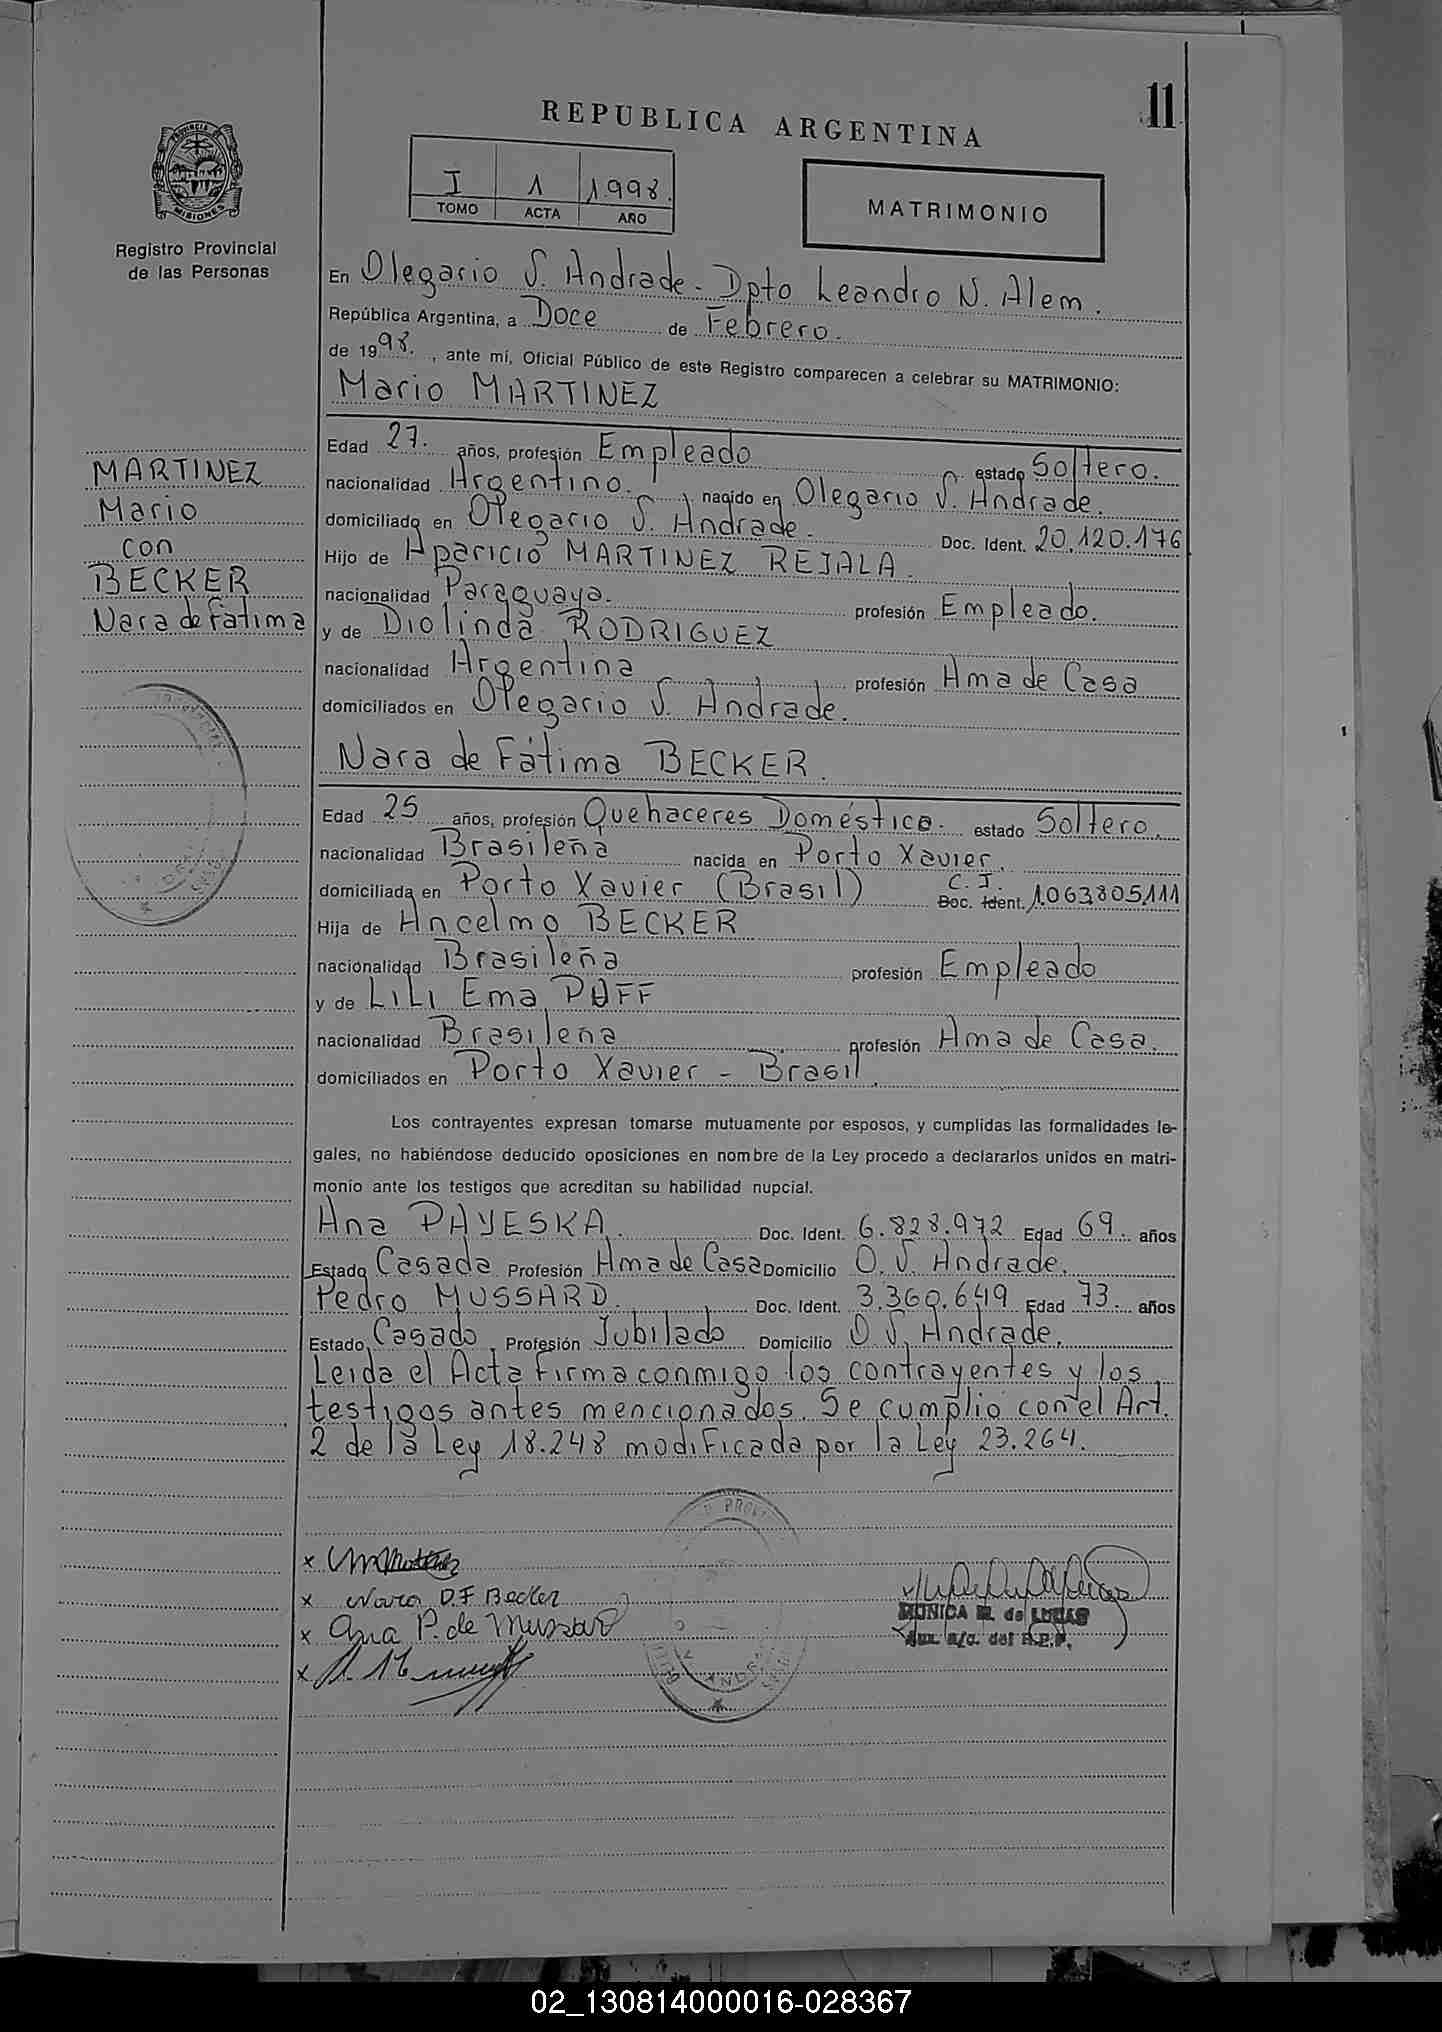 11
REPUBLICA ARGENTINA
PROVINCIA DE
MISIONES
Registro Provincial
de las Personas
I 1 1.998.
TOMO ACTA AÑO
MATRIMONIO
En Olegario V. Andrade - Dpto Leandro N. Alem.
República Argentina, a Doce de Febrero.
de 1998. , ante mí, Oficial Público de este Registro comparecen a celebrar su MATRIMONIO:
Mario MARTINEZ
MARTINEZ
Mario
con
BECKER
Nara de Fátima
Edad 27. años, profesión Empleado estado Soltero.
nacionalidad Argentino. nacido en Olegario V. Andrade.
domiciliado en Olegario V. Andrade. Doc. Ident. 20.120.176
Hijo de Aparicio MARTINEZ REJALA.
nacionalidad Paraguaya. profesión Empleado.
y de Diolinda RODRIGUEZ
nacionalidad Argentina profesión Ama de Casa
domiciliados en Olegario V. Andrade.
Nara de Fátima BECKER.
Edad 25 años, profesión Quehaceres Doméstico. estado Soltero.
nacionalidad Brasileña nacida en Porto Xavier.
domiciliada en Porto Xavier (Brasil) C.I. Doc. Ident. 1063805111
Hija de Ancelmo BECKER
nacionalidad Brasileña profesión Empleado
y de LILI Ema PUFF
nacionalidad Brasileña profesión Ama de Casa.
domiciliados en Porto Xavier - Brasil.
Los contrayentes expresan tomarse mutuamente por esposos, y cumplidas las formalidades le-
gales, no habiéndose deducido oposiciones en nombre de la Ley procedo a declararlos unidos en matri-
monio ante los testigos que acreditan su habilidad nupcial.
Ana PAYESKA. Doc. Ident. 6.828.972 Edad 69. años
Estado Casada Profesión Ama de Casa Domicilio O. V. Andrade.
Pedro MUSSARD. Doc. Ident. 3.360.649 Edad 73. años
Estado Casado. Profesión Jubilado Domicilio O V. Andrade.
Leida el Acta firma conmigo los contrayentes y los
testigos antes mencionados. Se cumplio con el Art.
2 de la Ley 18.248 modificada por la Ley 23.264.
x
x Nara D.F Becker
x Ana P. de Mussard
x
MONICA M. de LUCAS
Aux. a/c. del R.P.P.
02_130814000016-028367